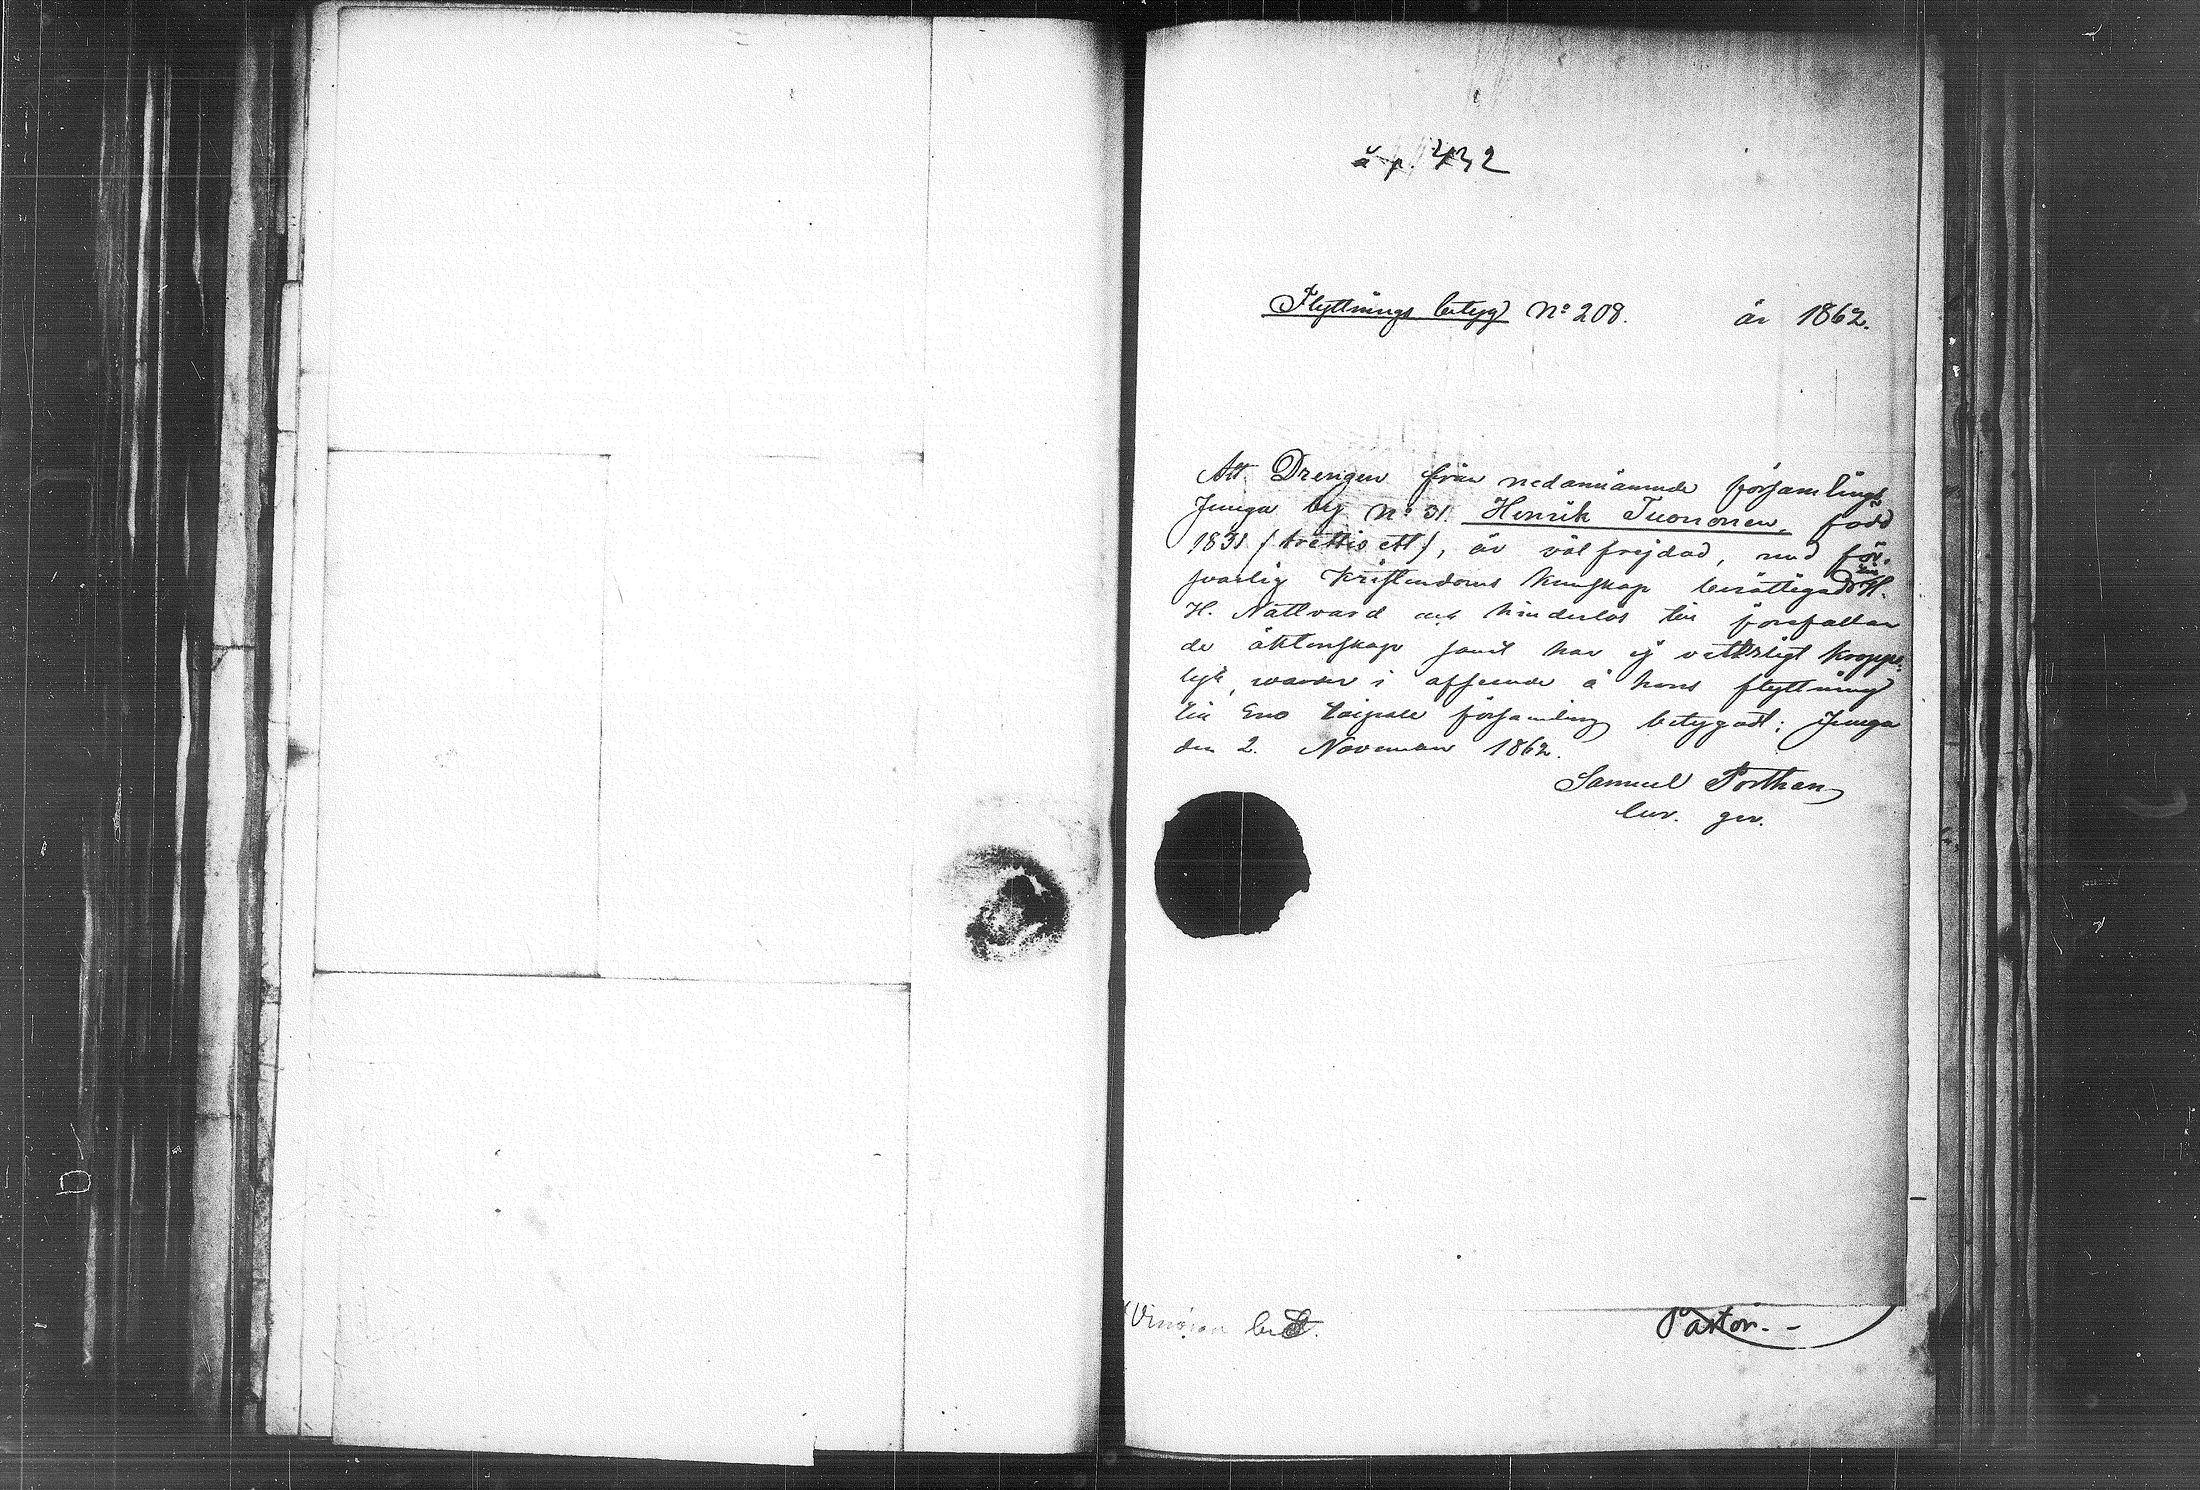 å p. 432
Flyttnings betyg No 208. år 1862.
Att Drengen från nedannämnde församlings
Juuga by No 31. Henrik Tuononen, född
1831 (trettio ett), är väl frejdad, med för-
svarlig Kristendoms kunskap berättigad till H.
H. Nattvard och hinderlös till förefallan
de äktenskap samt har ej vetterligt kropps-
lyte, warder i afseende å hans flyttning
till Eno Kaipale församling betygadt; Juuga
den 2. November 1862.
Samuel Porthan
Pastor.